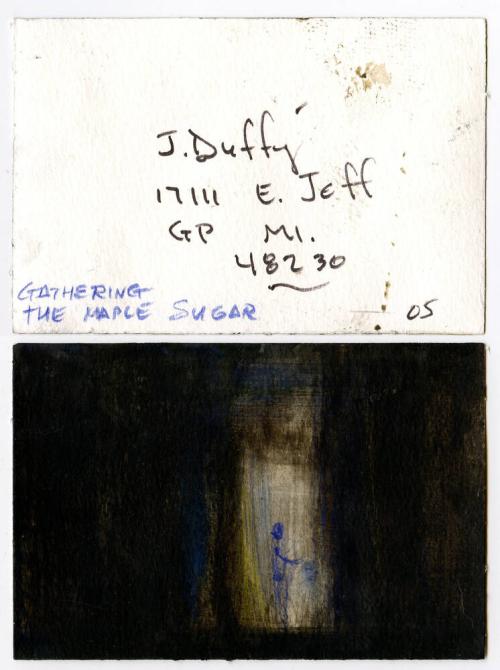 J. Duffy
17111 E. Jeff
GP MI.
48230
GATHERING
THE MAPLE SUGAR
05